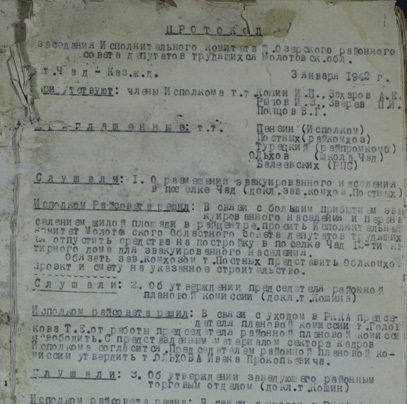 ПРОТОКОЛ
заседания Исполнительного Комитета Озерского районного
совета депутатов трудящихся Молотовск.обл.
ст.Чад - Каз.ж.д. 3 января 1942 г.
Присутствуют: члены Исполкома т.т
Приглашенные: т.т. Пензин (Исполком)
Постных(райкомхоз)
Турецкий (райпромкомб)
Ольхов (школа Чад)
Валеевских (РПС)
Слушали: 1. О размещении эвакуированного населения
в поселке Чад (докл.зав.комхоз.Постных)
Исполком Райсовета решил: В связи с большим прибытием эва
куированного населения и перена
селением жилой площади в райцентре, просить Исполнительный
комитет Молотовского Областного Совета депутатов трудящихся
отпустить средства на постройку в поселке Чад
тирного дома для эвакуированного населения.
Обязать зав.комхозом т.Постных представить Облкомхоз
проект и смету на указанное строительство.
Слушали: 2. Об утверждении председателя районной
плановой комиссии (докл.т Кошин)
Исполком райсовета решил: В связи с уходом в РККА предсе-
дателя плановой комиссии т.Голо
кова Т.Е.от работы председателя районной плановой комиссии
освободить. С представленным материалом сектора кадров
Исполкома согласится. Председателем районной плановой ко-
миссии утвердить т ОЛЬХОВА Ивана Прокопьевича.
Слушали: 3. Об утверждении заведующего районным
торговым отделом (докл.т Кошин)
Исполком райсовета решил: В связи с уходом в